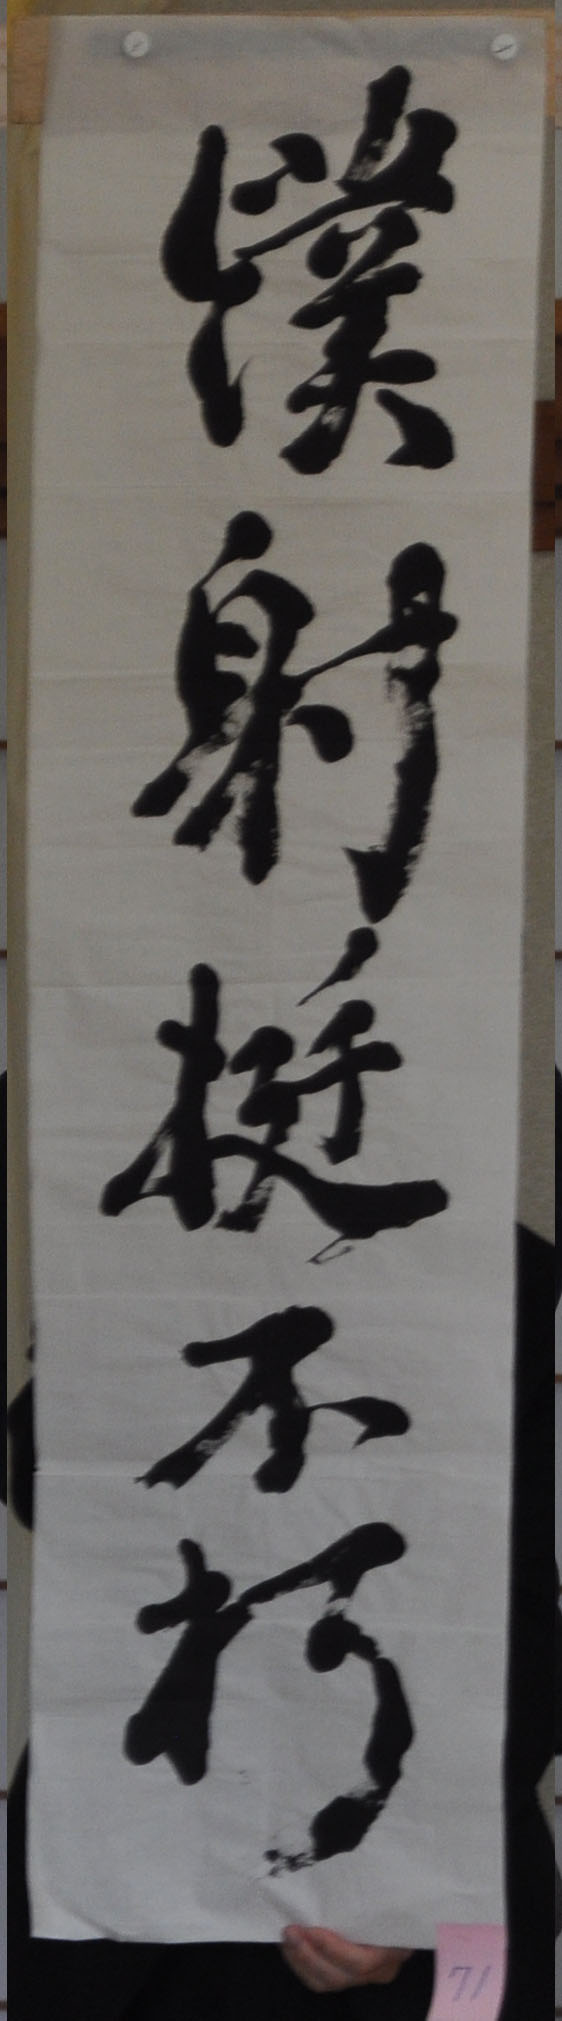 僕射挺不朽
71